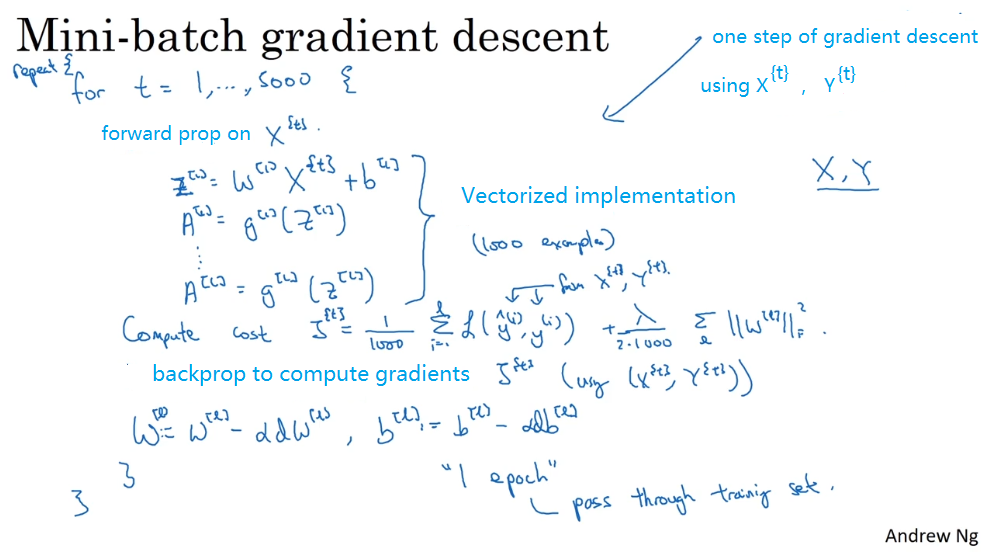 Mini-batch gradient descent
one step of gradient descent
using X^{t} , Y^{t}
repeat {
for t = 1,...,5000 {
forward prop on X^{t}.
X, Y
Z^[1] = W^[1] X^{t} + b^[1]
A^[1] = g^[1](Z^[1])
⋮
A^[L] = g^[L](Z^[L])
Vectorized implementation
(1000 examples)
from X^{t}, Y^{t}.
Compute cost J^{t} = 1/1000 Σ_{i=1}^{l} L(ŷ^(i), y^(i)) + λ/(2·1000) Σ_l ||W^[l]||_F^2 .
backprop to compute gradients J^{t} (using (X^{t}, Y^{t}))
W^[l] := W^[l] - αdW^[l], b^[l] := b^[l] - αdb^[l]
}
}
"1 epoch"
pass through training set.
Andrew Ng